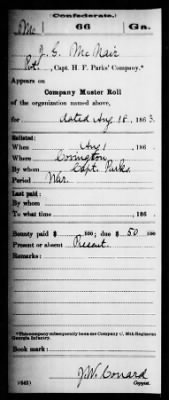 Confederate.
Mc 66 Ga.
J. G. McNair
Pvt., Capt. H. F. Parks' Company.*
Appears on
Company Muster Roll
of the organization named above,
for dated Aug 18, 1863.
Enlisted:
When Aug 1, 186
Where Covington
By whom Capt. Parks
Period War.
Last paid:
By whom
To what time , 186 .
Bounty paid $ 100; due $ 50 100
Present or absent Present
Remarks:
*This company subsequently became Company , 66th Regiment Georgia Infantry.
Book mark:
J. W. Conard
Copyist.